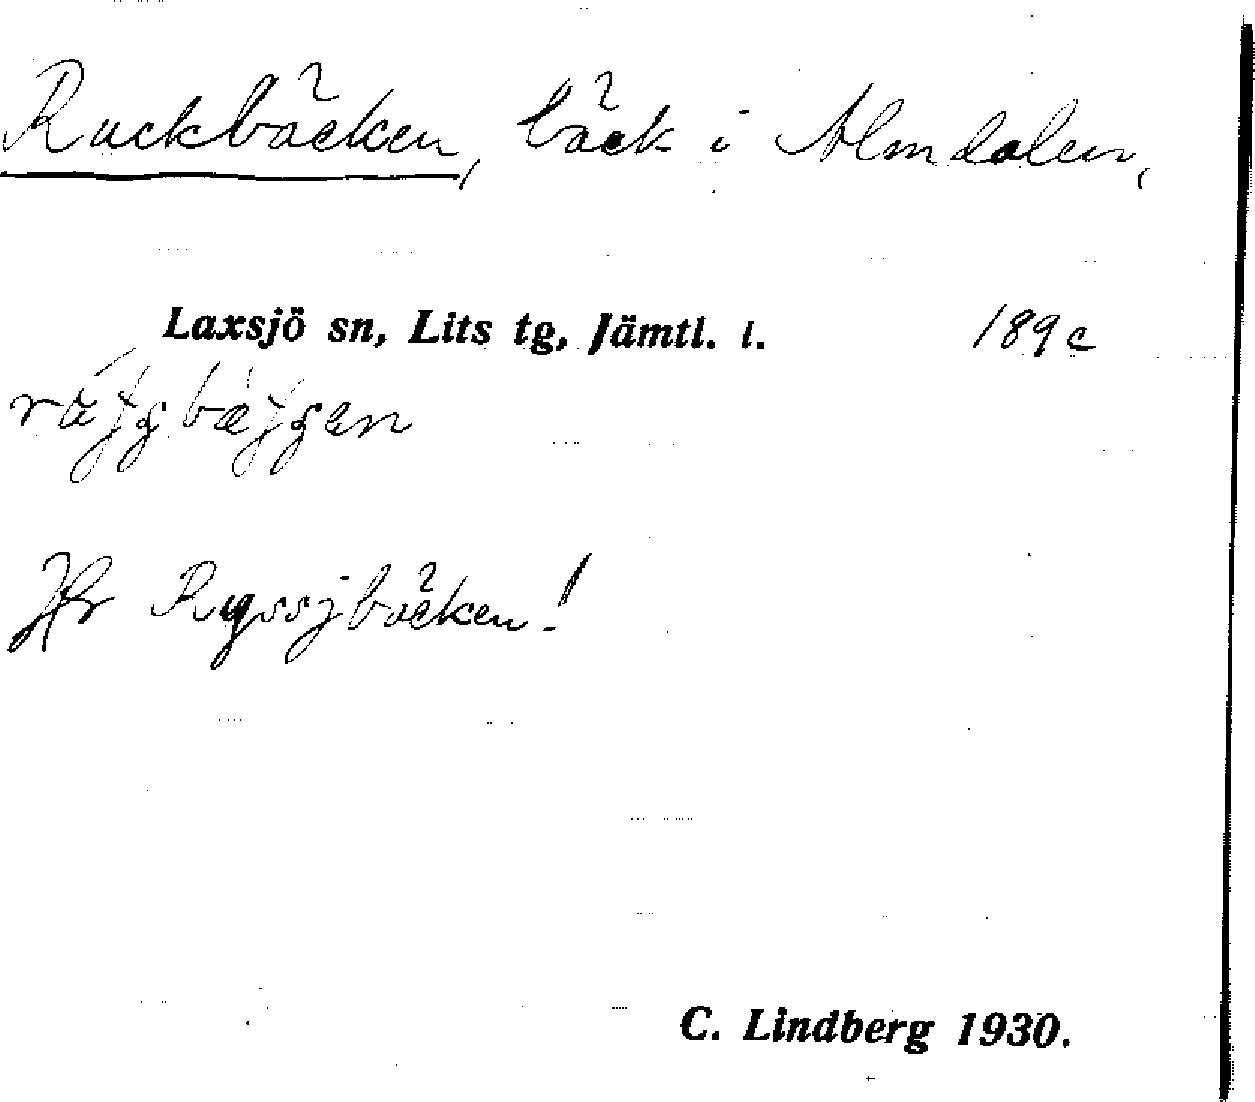 Ruckbäcken, bäck i Almdalen,
Laxsjö sn, Lits tg, Jämtl. l. 189c
Jfr Ryssjbäcken!
C. Lindberg 1930.